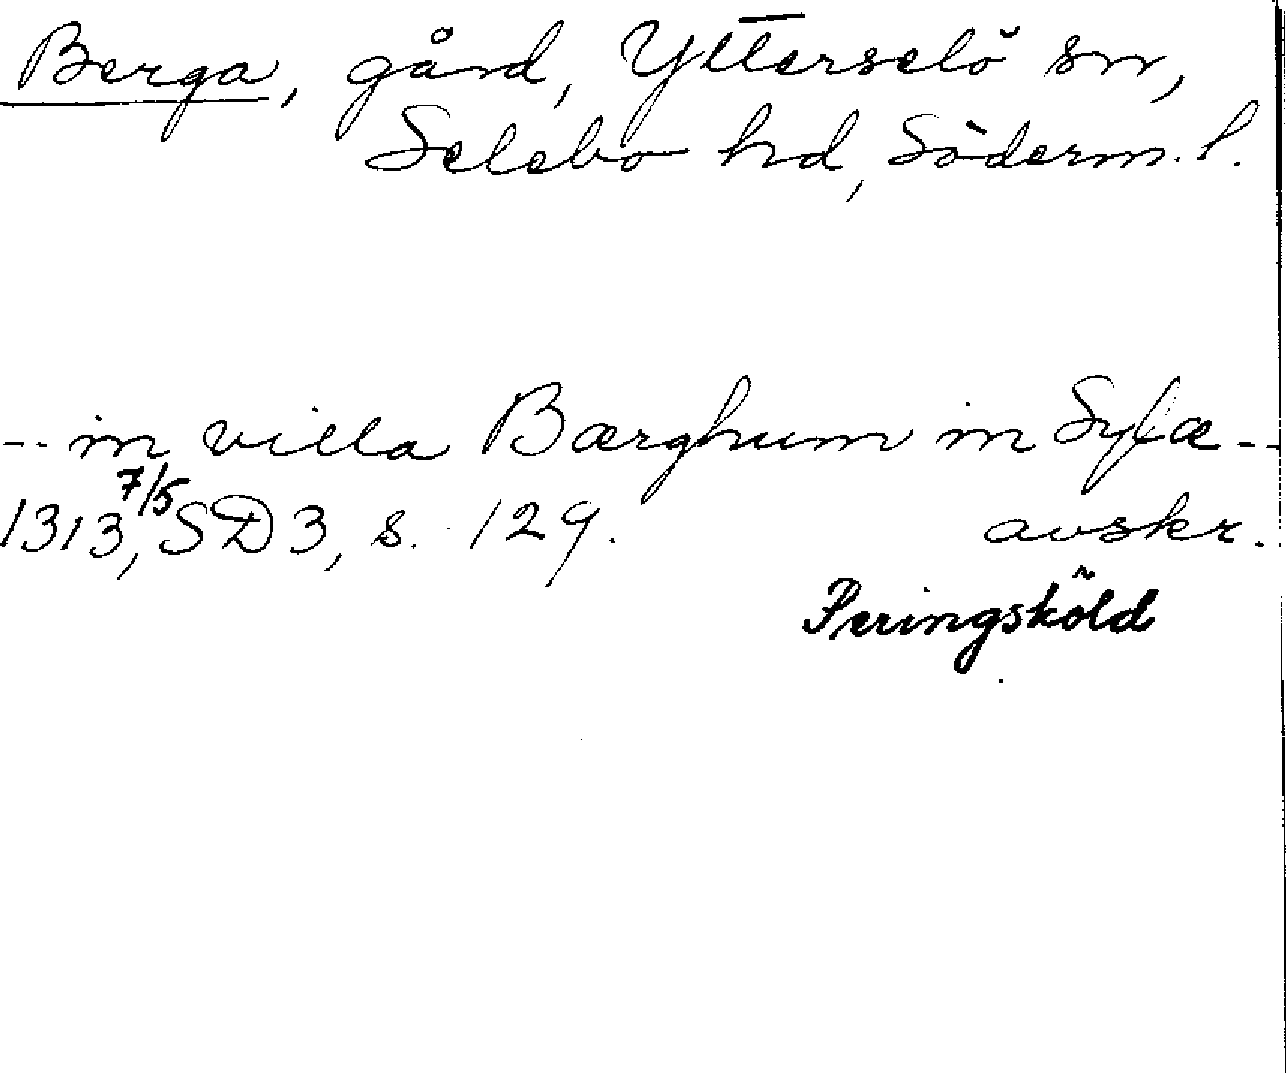 Berga, gård, Ytterselö sn,
Selebo hd, Söderm. l.
-- in villa Bærghum in Sylæ --
1313 7/5, SD 3, s. 129. avskr.
Peringsköld